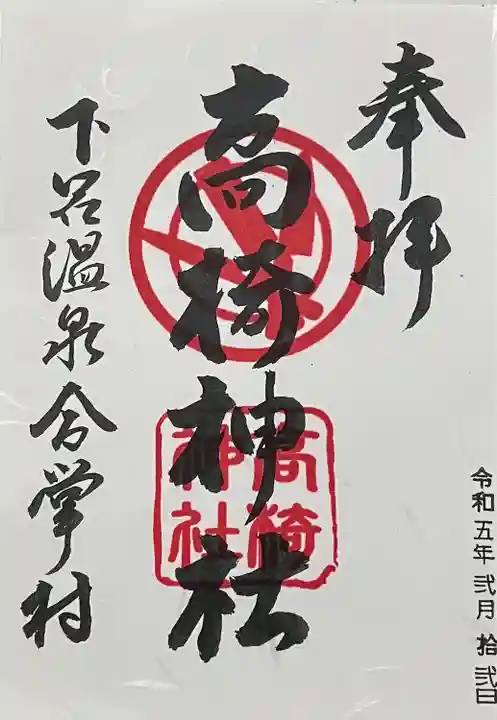 奉拝
高椅神社
下呂温泉合掌村
高椅
神社
令和五年 弐月 拾弐日